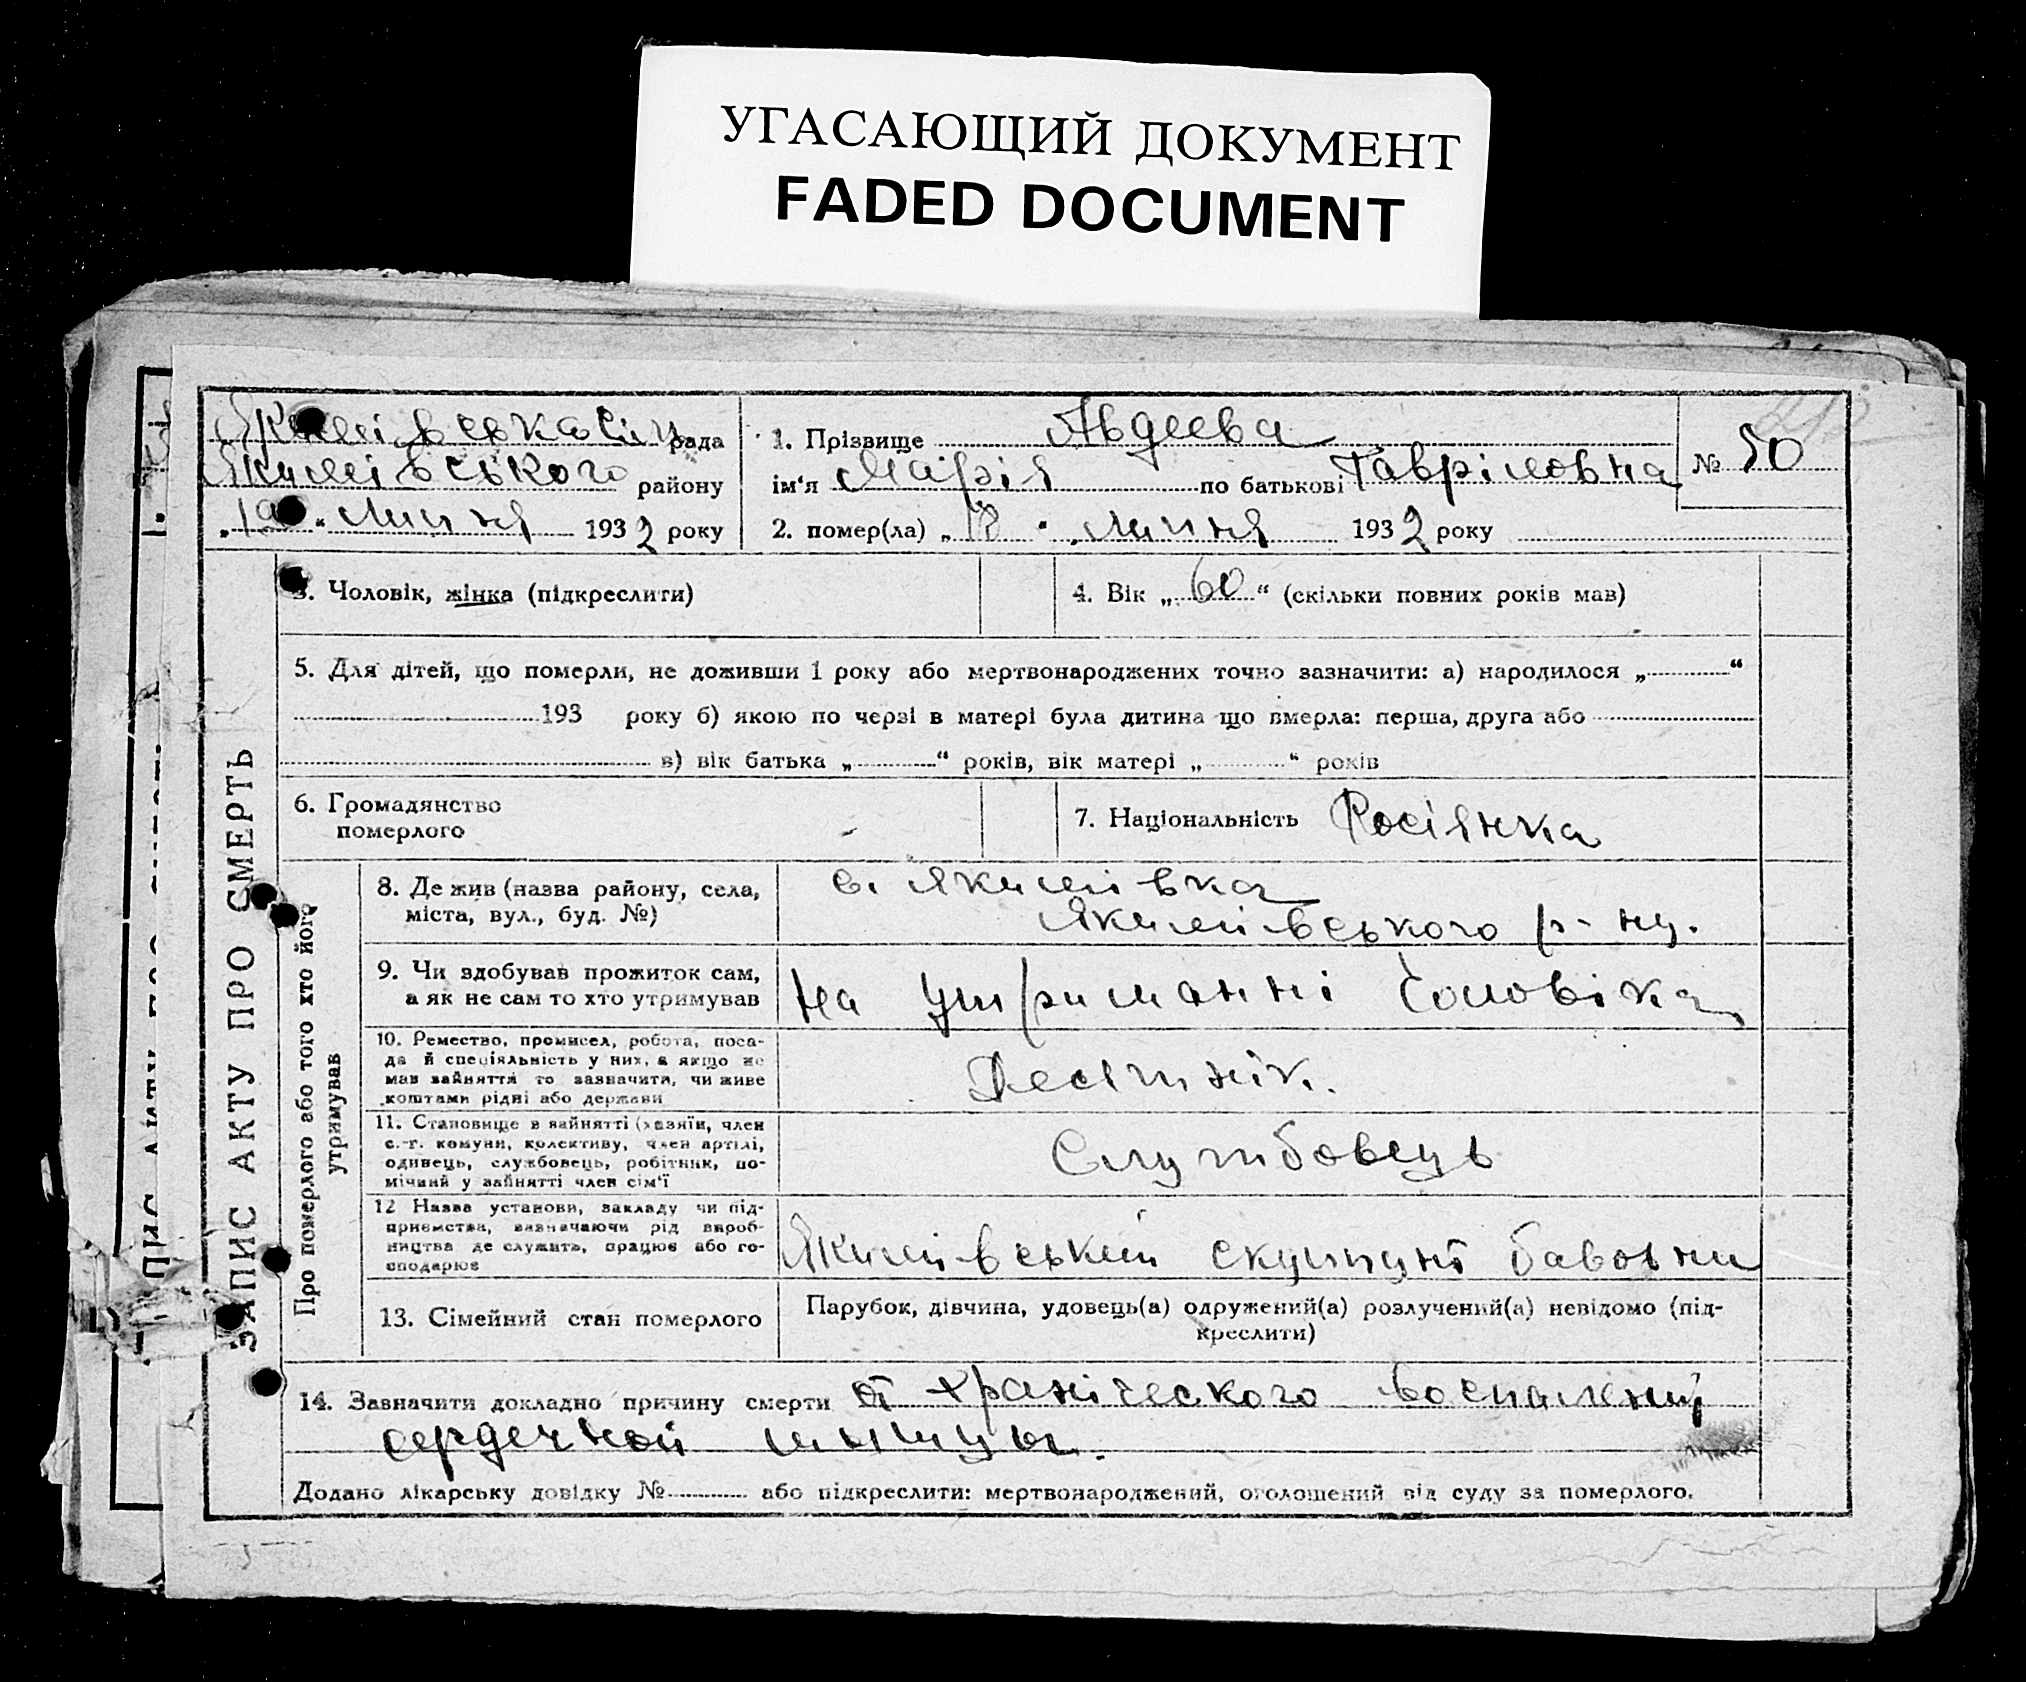 УГАСАЮЩИЙ ДОКУМЕНТ
FADED DOCUMENT
Якимівська сіл рада
Якимівського району
„19“ липня 1932 року
1. Прізвище Авдеева
ім'я Марія по батькові Гавріловна
№ 50
2. помер(ла) „18“ липня 1932 року
ЗАПИС АКТУ ПРО СМЕРТЬ
3. Чоловік, жінка (підкреслити)
4. Вік „60“ (скільки повних років мав)
5. Для дітей, що померли, не доживши 1 року або мертвонароджених точно зазначити: а) народилося „ “
193 року б) якою по черзі в матері була дитина що вмерла: перша, друга або
в) вік батька „ “ років, вік матері „ “ років
6. Громадянство
померлого -
7. Національність Росіянка
Про померлого або того хто його
утримував
8. Де жив (назва району, села,
міста, вул., буд. №)
с. Якимівка
Якимівського р-ну.
9. Чи здобував прожиток сам,
а як не сам то хто утримував
на утриманні чоловіка
10. Ремество, промисел, робота, поса-
да й спеціяльність у них, а якщо не
мав зайняття то зазначити, чи живе
коштами рідні або держави
Десятнік.
11. Становище в зайнятті (хазяїн, член
с.-г. комуни, колективу, член артілі,
одинець, службовець, робітник, по-
мічний у зайнятті член сім'ї
Службовець
12 Назва установи, закладу чи під-
приємства, зазначаючи рід вироб-
ництва де служить, працює або го-
сподарює
Якимівський скуппункт бавовни
13. Сімейний стан померлого
Парубок, дівчина, удовець(а) одружений(а) розлучений(а) невідомо (під-
креслити)
14. Зазначити докладно причину смерти от хранического воспалений
сердечной мышцы.
Додано лікарську довідку № або підкреслити: мертвонароджений, оголошений від суду за померлого.